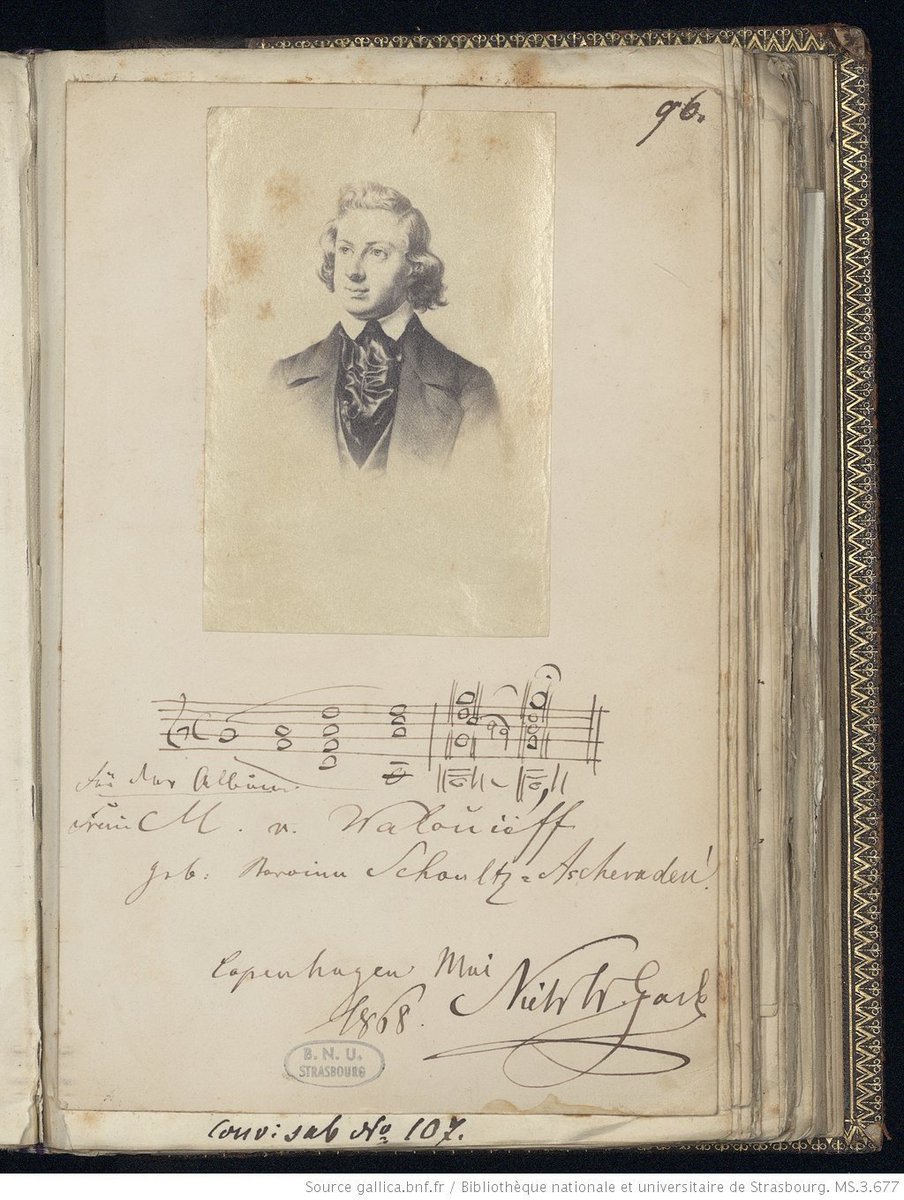 96.
Für das Album
Frau M. v. Walouieff
geb: Baronin Schoultz=Ascheraden!
Copenhagen Mai
1868. Niels W. Gade
B. N. U.
STRASBOURG
Conv: sub No 107.
Source gallica.bnf.fr / Bibliothèque nationale et universitaire de Strasbourg. MS.3.677